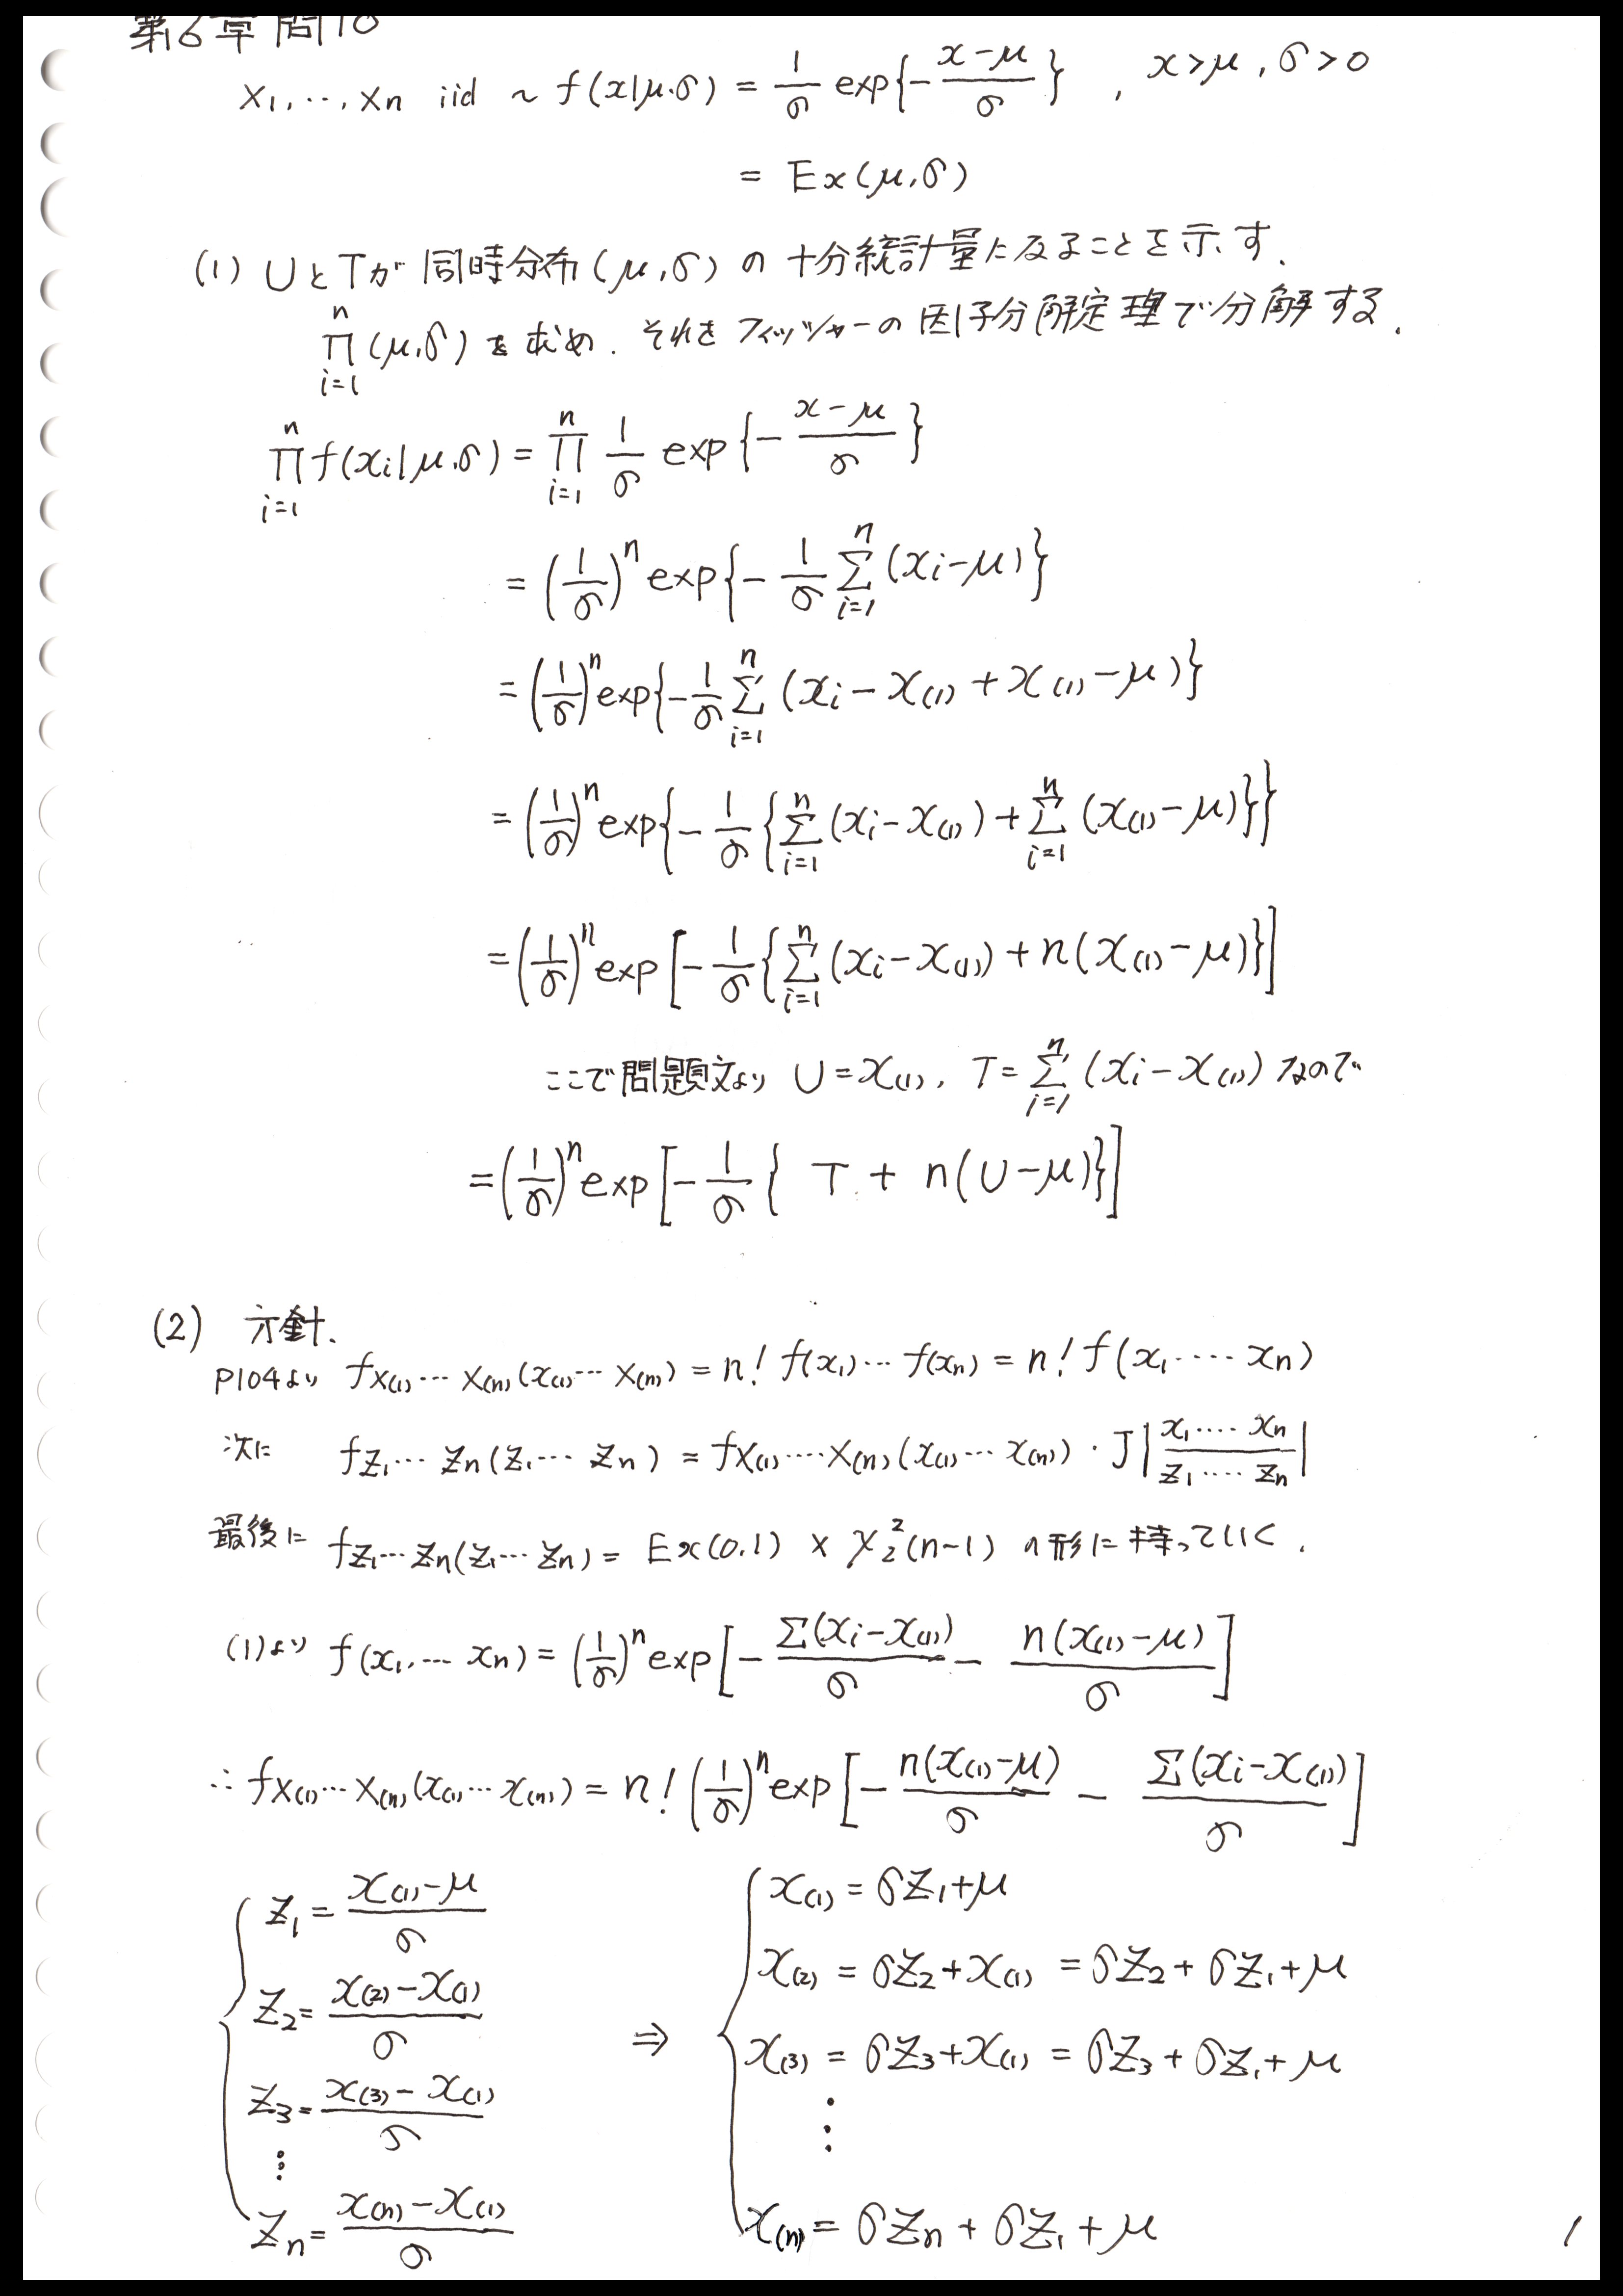 第6章 問10
X₁, ⋯, Xn iid ~ f(x|μ.σ) = 1/σ exp{- (x-μ)/σ} , x>μ, σ>0
= Ex(μ,σ)
(1) UとTが同時分布(μ,σ)の十分統計量になることを示す.
n∏i=1 (μ,σ)を求め. それをフィッシャーの因子分解定理で分解する.
n∏i=1 f(xi|μ.σ) = n∏i=1 1/σ exp{- (x-μ)/σ}
= (1/σ)ⁿ exp{- 1/σ nΣi=1 (xi-μ)}
= (1/σ)ⁿ exp{- 1/σ nΣi=1 (xi - x(1) + x(1) - μ)}
= (1/σ)ⁿ exp{- 1/σ {nΣi=1 (xi - x(1)) + nΣi=1 (x(1) - μ)}}
= (1/σ)ⁿ exp[- 1/σ {nΣi=1 (xi - x(1)) + n(x(1) - μ)}]
ここで問題文より U = x(1), T = nΣi=1 (xi - x(1)) なので
= (1/σ)ⁿ exp[- 1/σ { T + n(U-μ)}]
(2) 方針.
P104より fX(1)⋯X(n)(x(1)⋯x(n)) = n! f(x₁)⋯f(xn) = n! f(x₁⋯⋯xn)
次に fZ₁⋯Zn(Z₁⋯Zn) = fX(1)⋯⋯X(n)(x(1)⋯x(n)) · J|x₁⋯⋯xn / Z₁⋯⋯Zn|
最後に fZ₁⋯Zn(Z₁⋯Zn) = Ex(0.1) × χ²₂(n-1) の形に持っていく.
(1)より f(x₁,⋯ xn) = (1/σ)ⁿ exp[- Σ(xi - x(1))/σ - n(x(1) - μ)/σ]
∴ fX(1)⋯X(n)(x(1)⋯x(n)) = n! (1/σ)ⁿ exp[- n(x(1) - μ)/σ - Σ(xi - x(1))/σ]
Z₁ = (x(1) - μ)/σ
Z₂ = (x(2) - x(1))/σ
Z₃ = (x(3) - x(1))/σ
⋮
Zn = (x(n) - x(1))/σ
⇒
x(1) = σZ₁+μ
x(2) = σZ₂+x(1) = σZ₂+ σZ₁+μ
x(3) = σZ₃+x(1) = σZ₃ + σZ₁+μ
⋮
x(n) = σZn + σZ₁ + μ
1